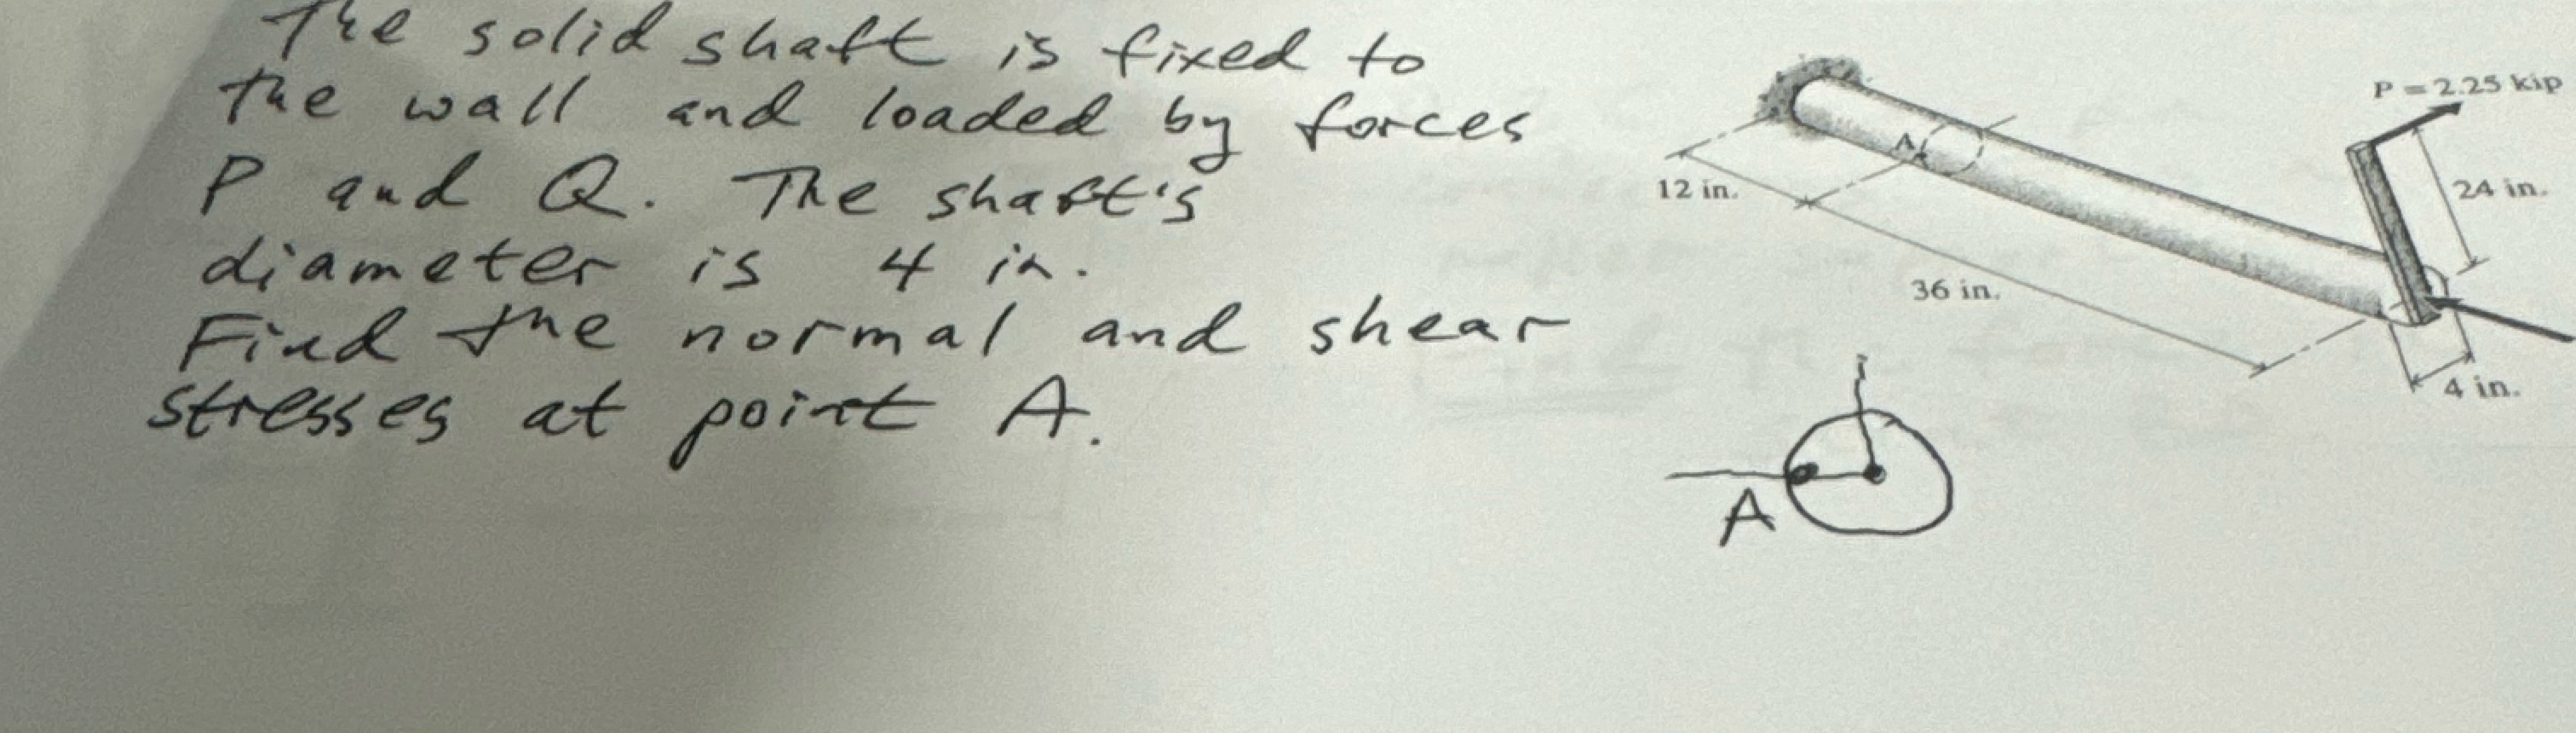 The solid shaft is fixed to
the wall and loaded by forces
P and Q. The shaft's
diameter is 4 in.
Find the normal and shear
stresses at point A.
P = 2.25 kip
A
12 in.
24 in.
36 in.
4 in.
A